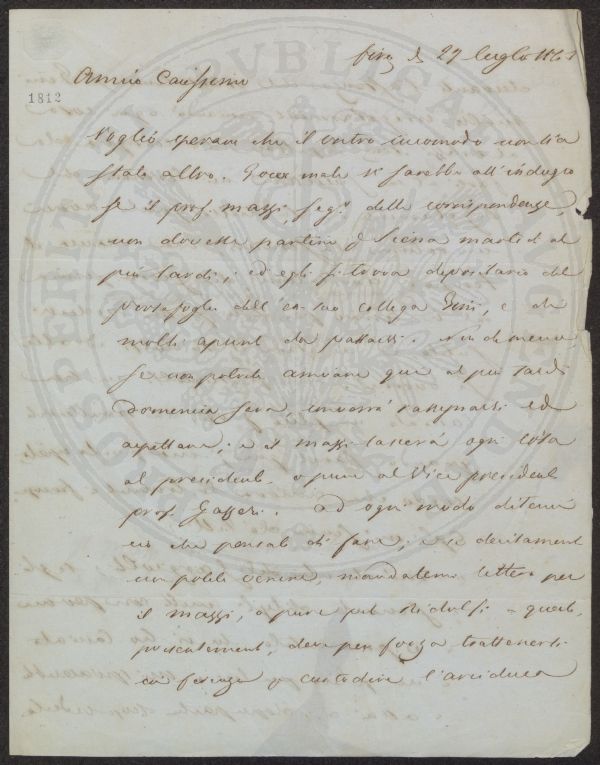 27 luglio 1861
Amico Carissimo
1812
Voglio sperare che il vostro incomodo non sia
stato altro. Poco male si sarebbe all'indugio
se il prof. Mazzi, seg.º delle corrispondenze,
non dovesse partire p Siena martedì al
più tardi; ed egli si trova depositario del
portafoglio dell' ex-suo collega, e di
molti apunti da passarsi. Non di meno
se non potete arrivare qui al più tardi
domenica sera, converrà rassegnarsi ed
aspettare; e il Mazzi lascerà ogni cosa
al presidente oppure al Vice presidente
prof. Gazzeri. Ad ogni modo ditemi
ciò che pensate di fare; e se decisamente
non potete venire, mandatemi lettera per
il Mazzi, oppure pel Ridolfi - questi,
presentemente, deve per forza trattenersi
p custodire l'arciduca